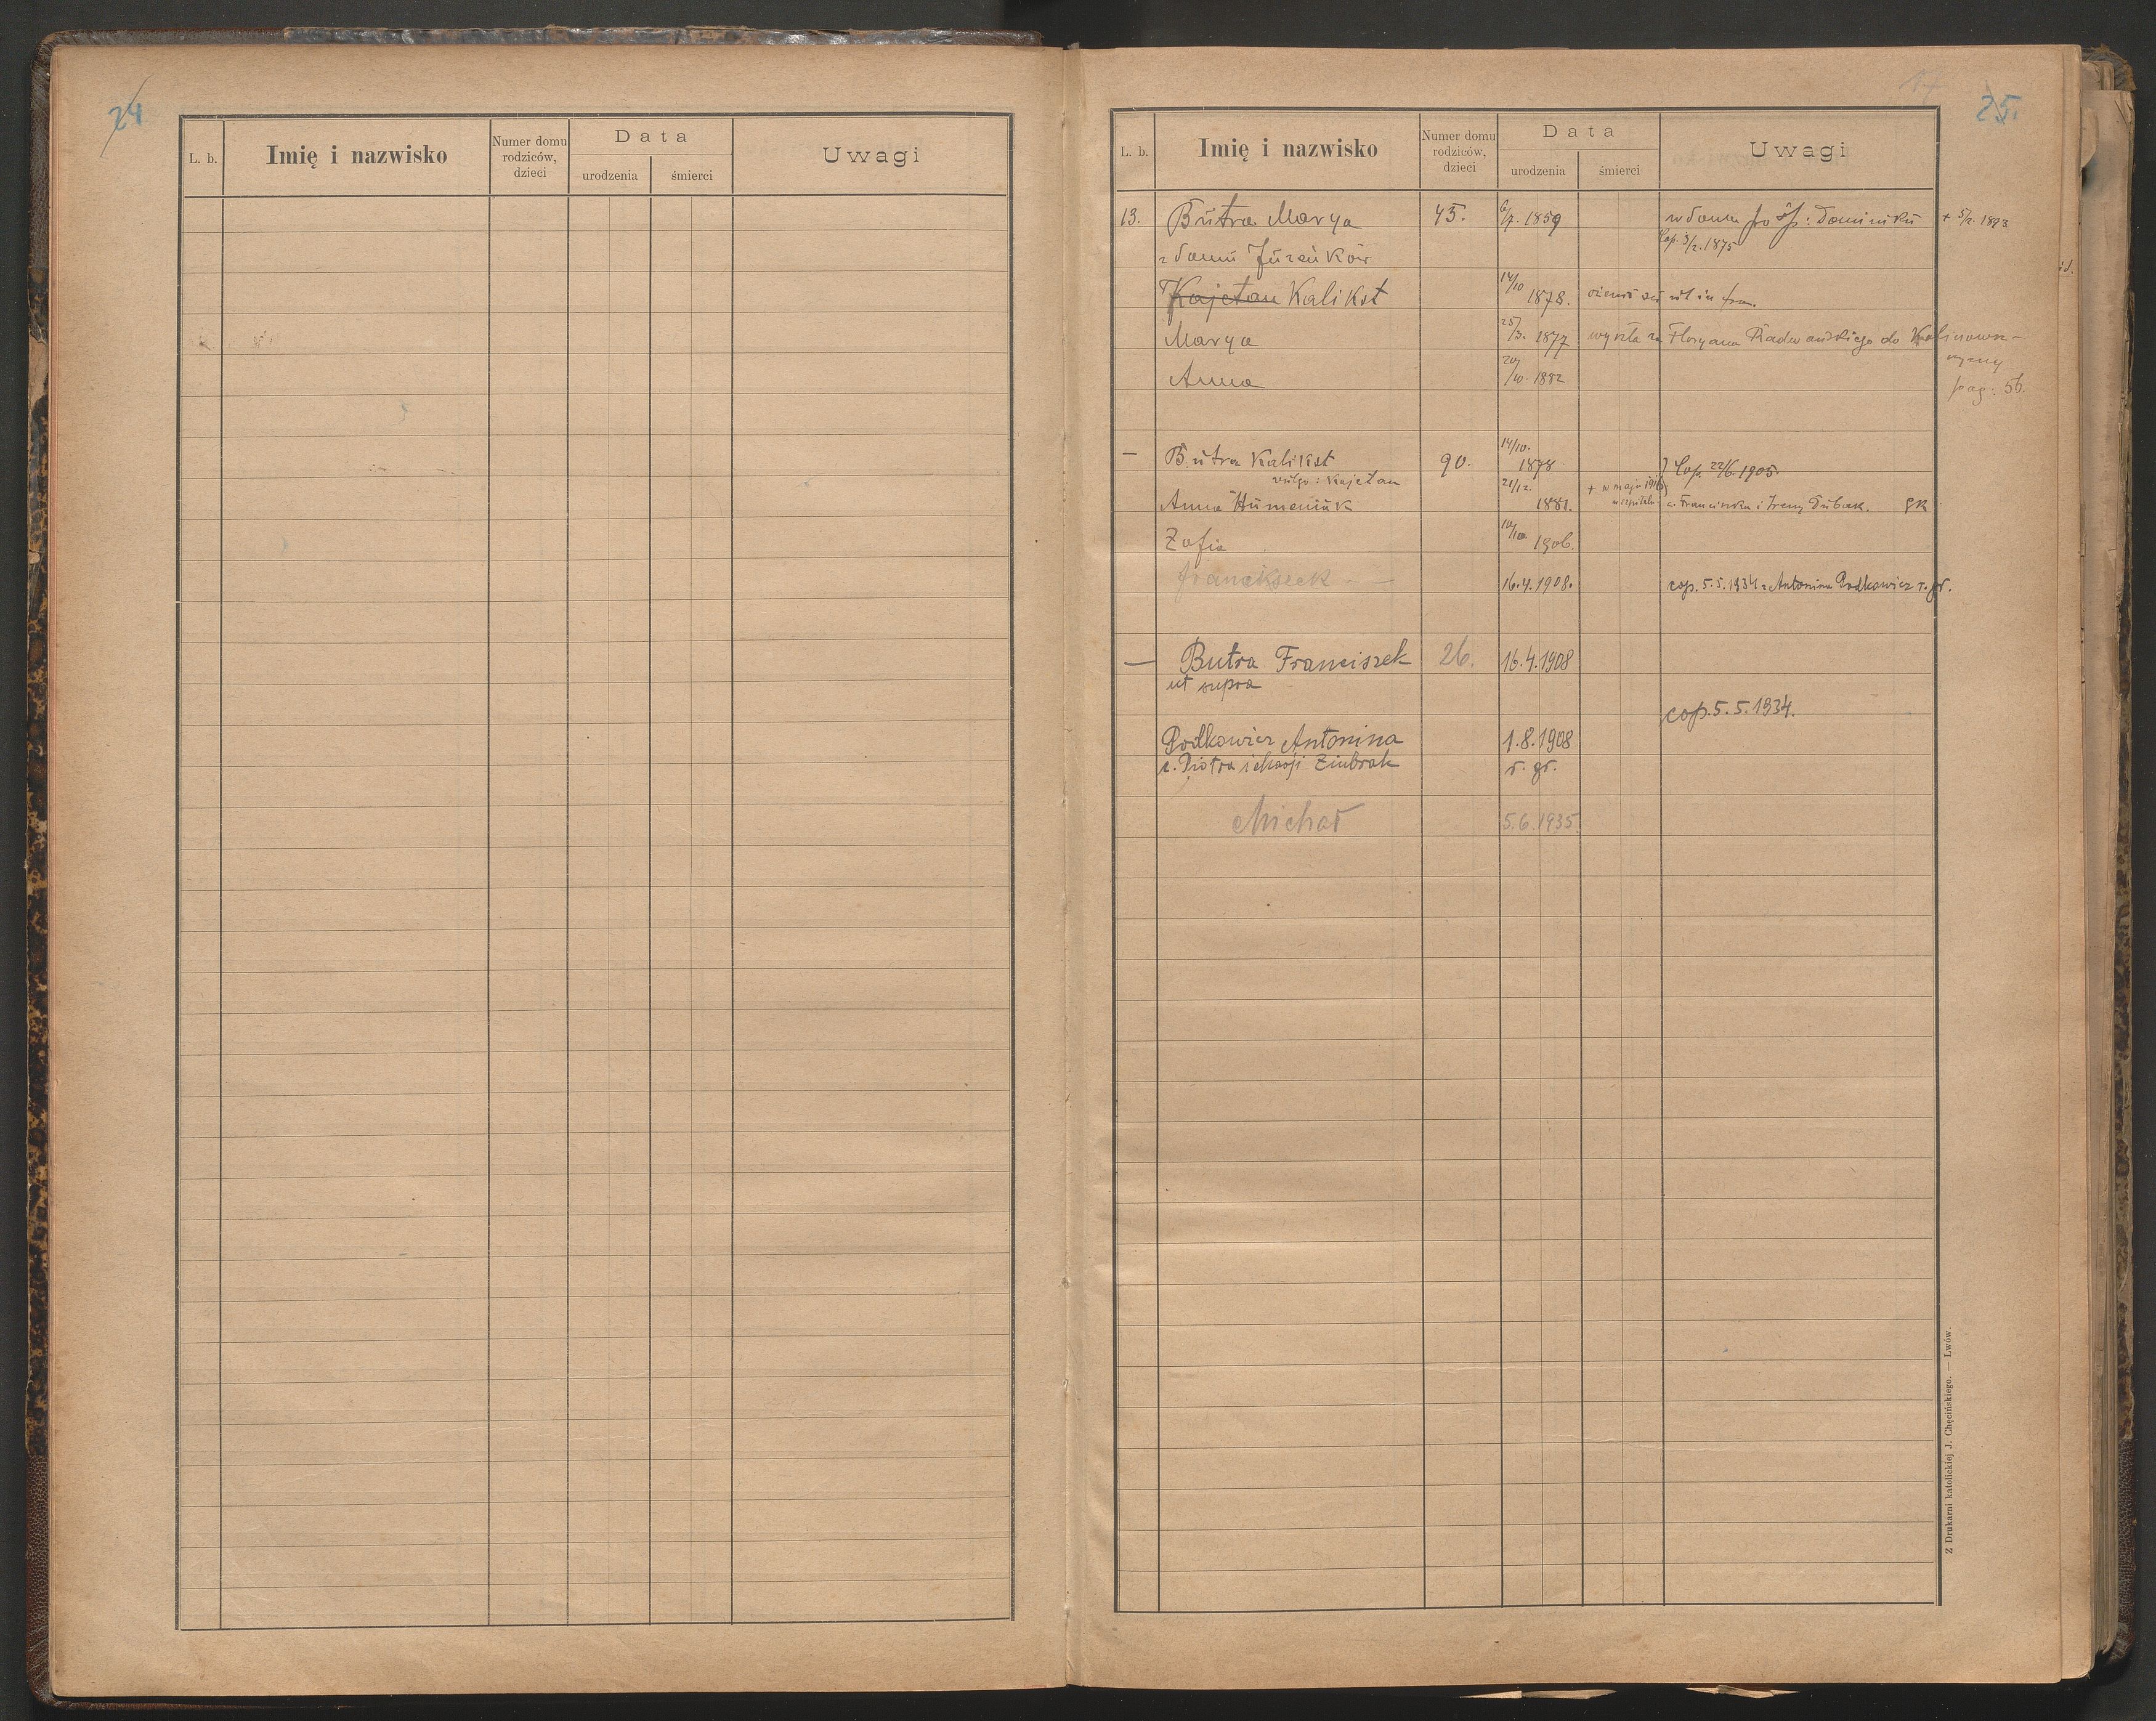 24
L. b.
Imię i nazwisko
Numer domu
rodziców,
dzieci
Data
urodzenia
śmierci
Uwagi
17
25.
L. b.
Imię i nazwisko
Numer domu
rodziców,
dzieci
Data
urodzenia
śmierci
Uwagi
13. Butra Marya 45. 6/7. 1859 wdowa po śp: Dominiku + 5/2. 1893
Cop. 3/2. 1875
z domu Jureńków
Kajetan Kalikst 14/10 1878. ożenił się ut in fra.
Marya 25/3. 1877 wyszła za Floryana Radwańskiego do
Anna 20/10. 1882 pag: 56.
— Butra Kalikst 90. 14/10. 1878 Cop. 22/6. 1905.
vulgo: Kajetan
Anna Humeniuk 21/12. 1881. + w maju w szpitalu c. Franciszka i Ireny gk
Zofia 10/10 1906.
Franciszek — 16.4.1908. cop. 5.5.1934 z Antonina Podkowicz r. gr.
— Butra Franciszek 26. 16.4.1908
ut supra
cop. 5.5.1934.
Podkowicz Antonina 1.8.1908
c. Piotra i Marji Ziubrak r. gr.
Michał 5.6.1935
Z Drukarni katolickiej J. Chęcińskiego. — Lwów.